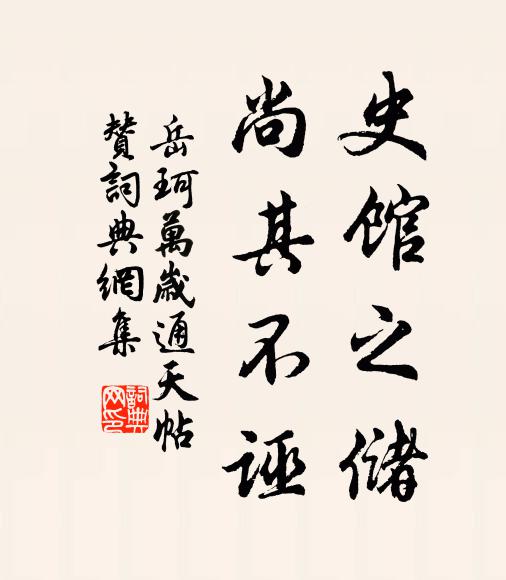 史館之儲
尚其不誣
岳珂萬歲通天帖
贊詞典網集
詞典
网印